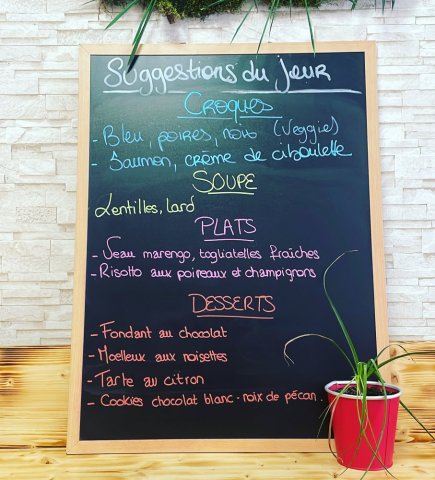 Suggestions du jour
CROQUES
- Bleu, poires, noix (Veggie)
- Saumon, crème de ciboulette
SOUPE
Lentilles, lard
PLATS
- Veau marengo, tagliatelles fraîches
- Risotto aux poireaux et champignons
DESSERTS
- Fondant au chocolat
- Moelleux aux noisettes
- Tarte au citron
- Cookies chocolat blanc - noix de pécan.